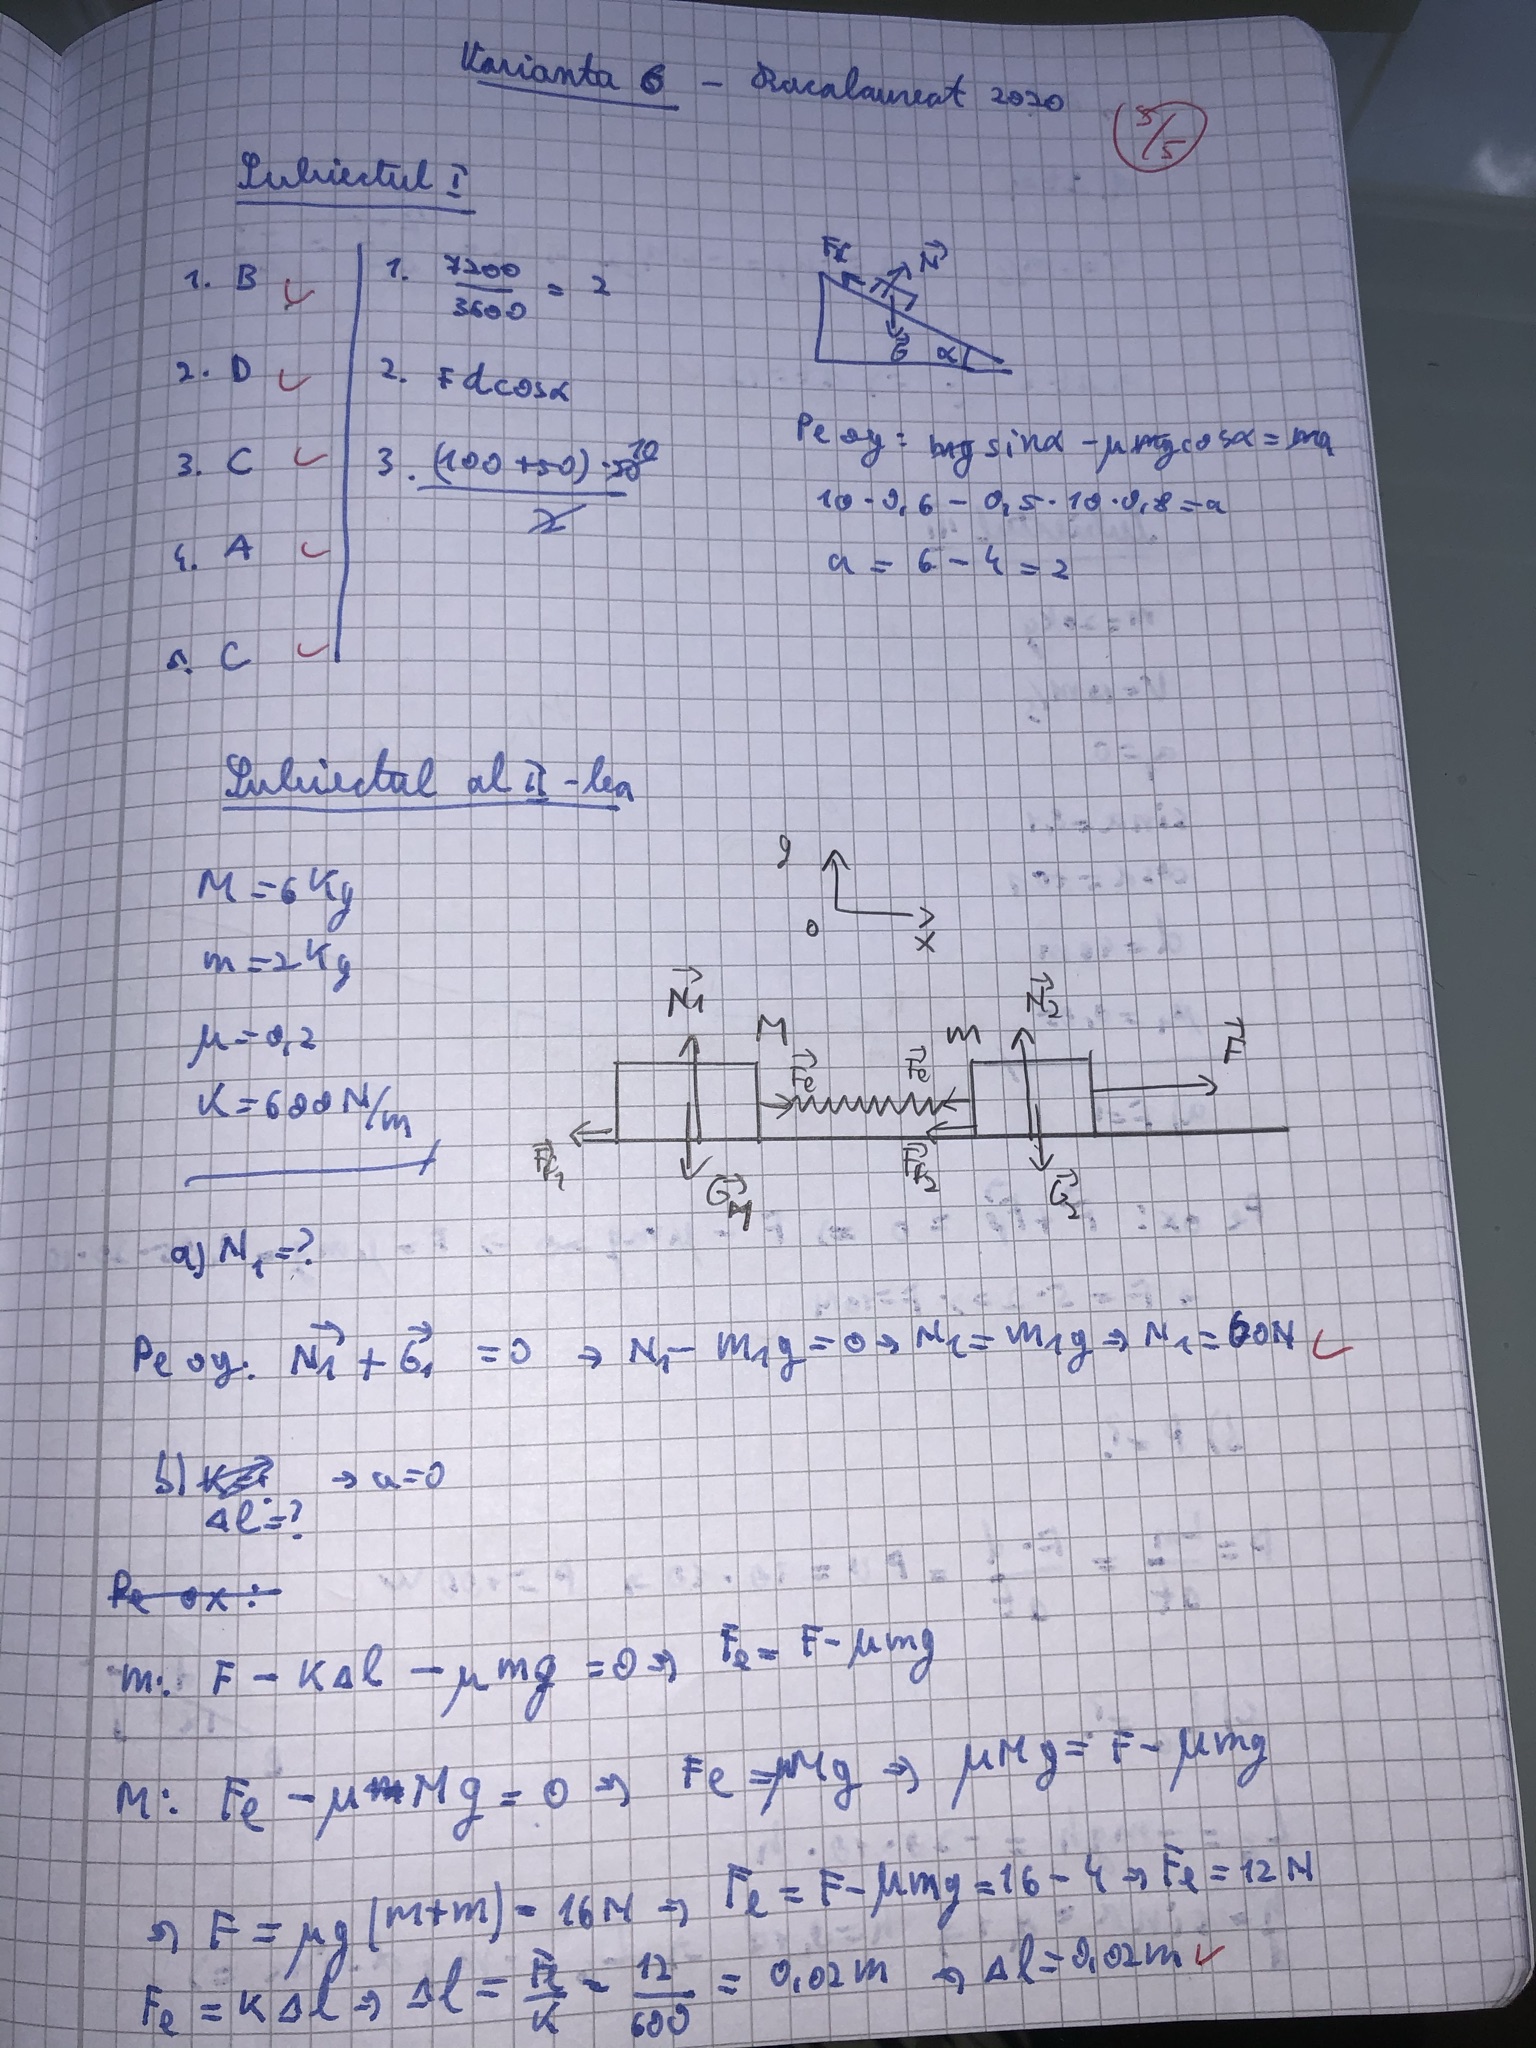 Varianta 6 - Bacalaureat 2020
5/5
Subiectul I
1. B
2. D
3. C
4. A
5. C
1. 7200/3600 = 2
2. Fdcosα
3. (100+50)·20/2
Ff
N
G
α
Pe oy: mg sinα - μmgcosα = ma
10·0,6 - 0,5·10·0,8 = a
a = 6 - 4 = 2
Subiectul al II-lea
M = 6 Kg
m = 2 Kg
μ = 0,2
K = 600 N/m
y
O
x
N1
M
Fe
Fe
m
N2
F
Ff1
GM
Ff2
G2
a) N1 = ?
Pe oy: N1 + G1 = 0 → N1 - m1g = 0 → N1 = m1g → N1 = 60N
b) → a = 0
Δl = ?
Pe ox:
m: F - KΔl - μmg = 0 → Fe = F - μmg
M: Fe - μMg = 0 → Fe = μMg → μMg = F - μmg
→ F = μg(m+m) = 16N → Fe = F - μmg = 16 - 4 → Fe = 12N
Fe = KΔl → Δl = Fe/K = 12/600 = 0,02m → Δl = 0,02m